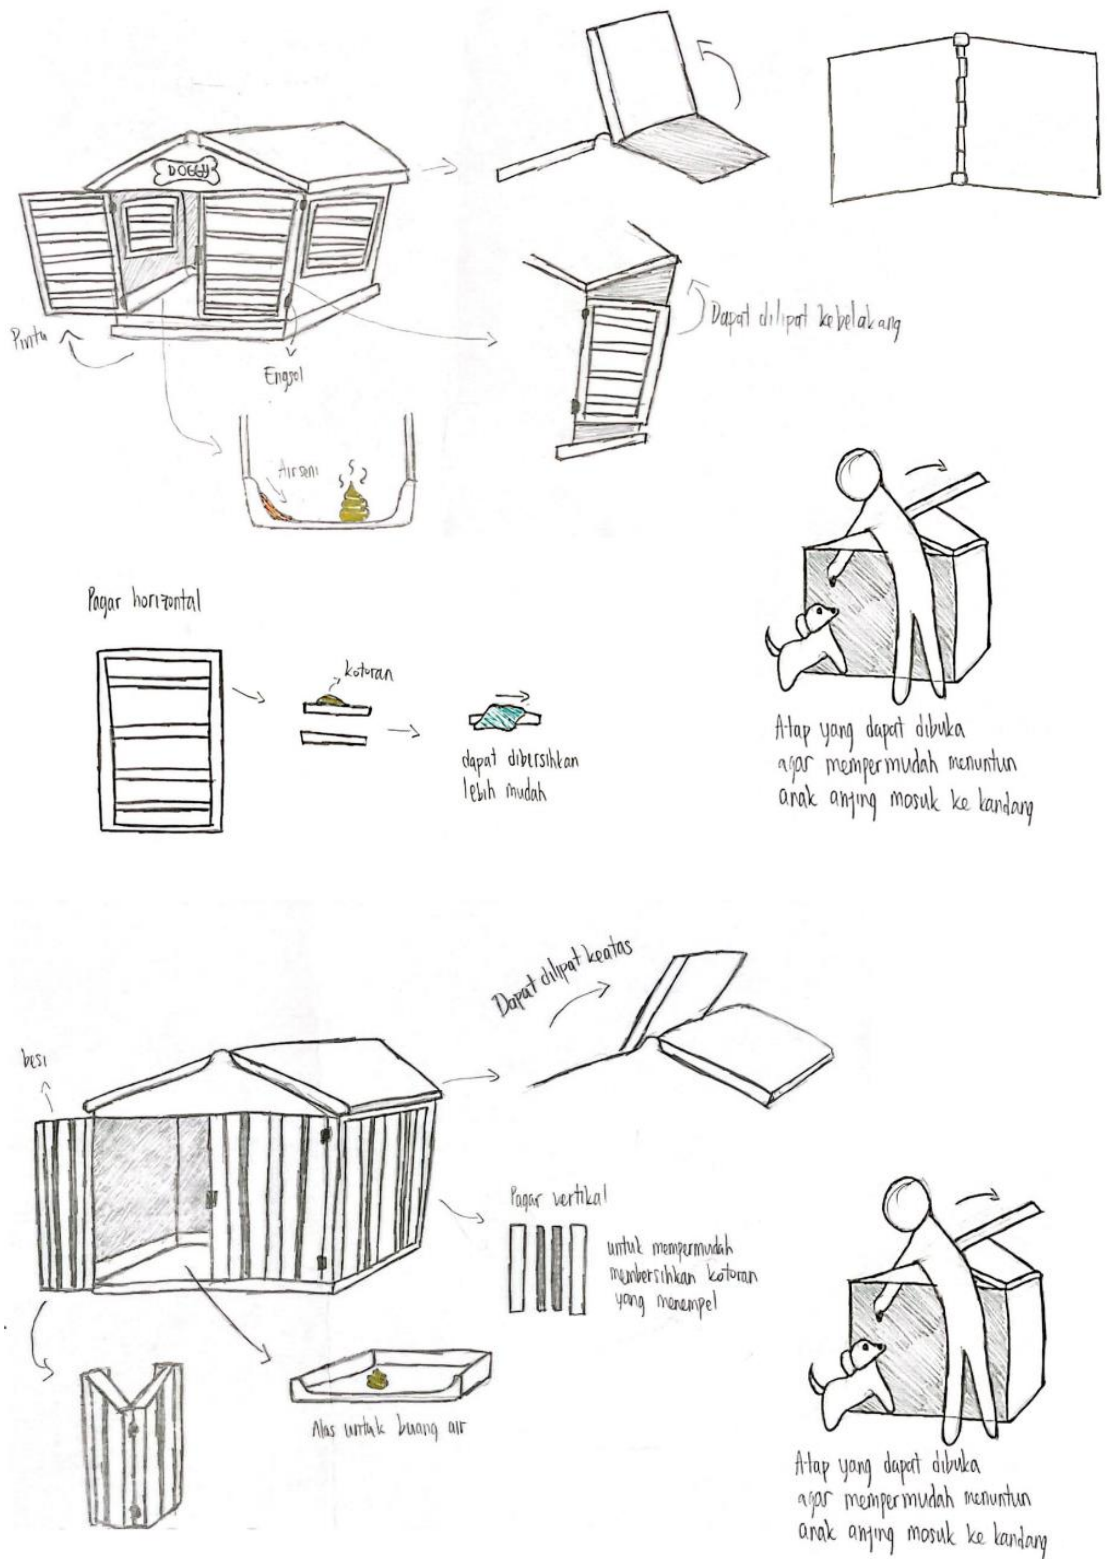 DOGGY
Pintu
Engsol
Dapat dilipat kebelakang
Air seni
Pagar horizontal
kotoran
dapat dibersihkan
lebih mudah
Atap yang dapat dibuka
agar mempermudah menuntun
anak anjing masuk ke kandang
Dapat dilipat keatas
besi
Pagar vertikal
untuk mempermudah
membersihkan kotoran
yang menempel
Alas untuk buang air
Atap yang dapat dibuka
agar mempermudah menuntun
anak anjing masuk ke kandang